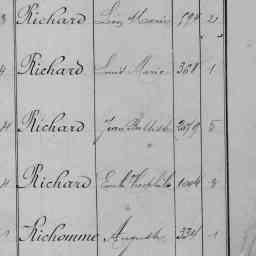 Richard Léon Marie 594 2
Richard Louis Marie 368 1
Richard Jean Baptiste 2079 5
Richard Emile Théophile 1004 3
Richomme Auguste 334 1